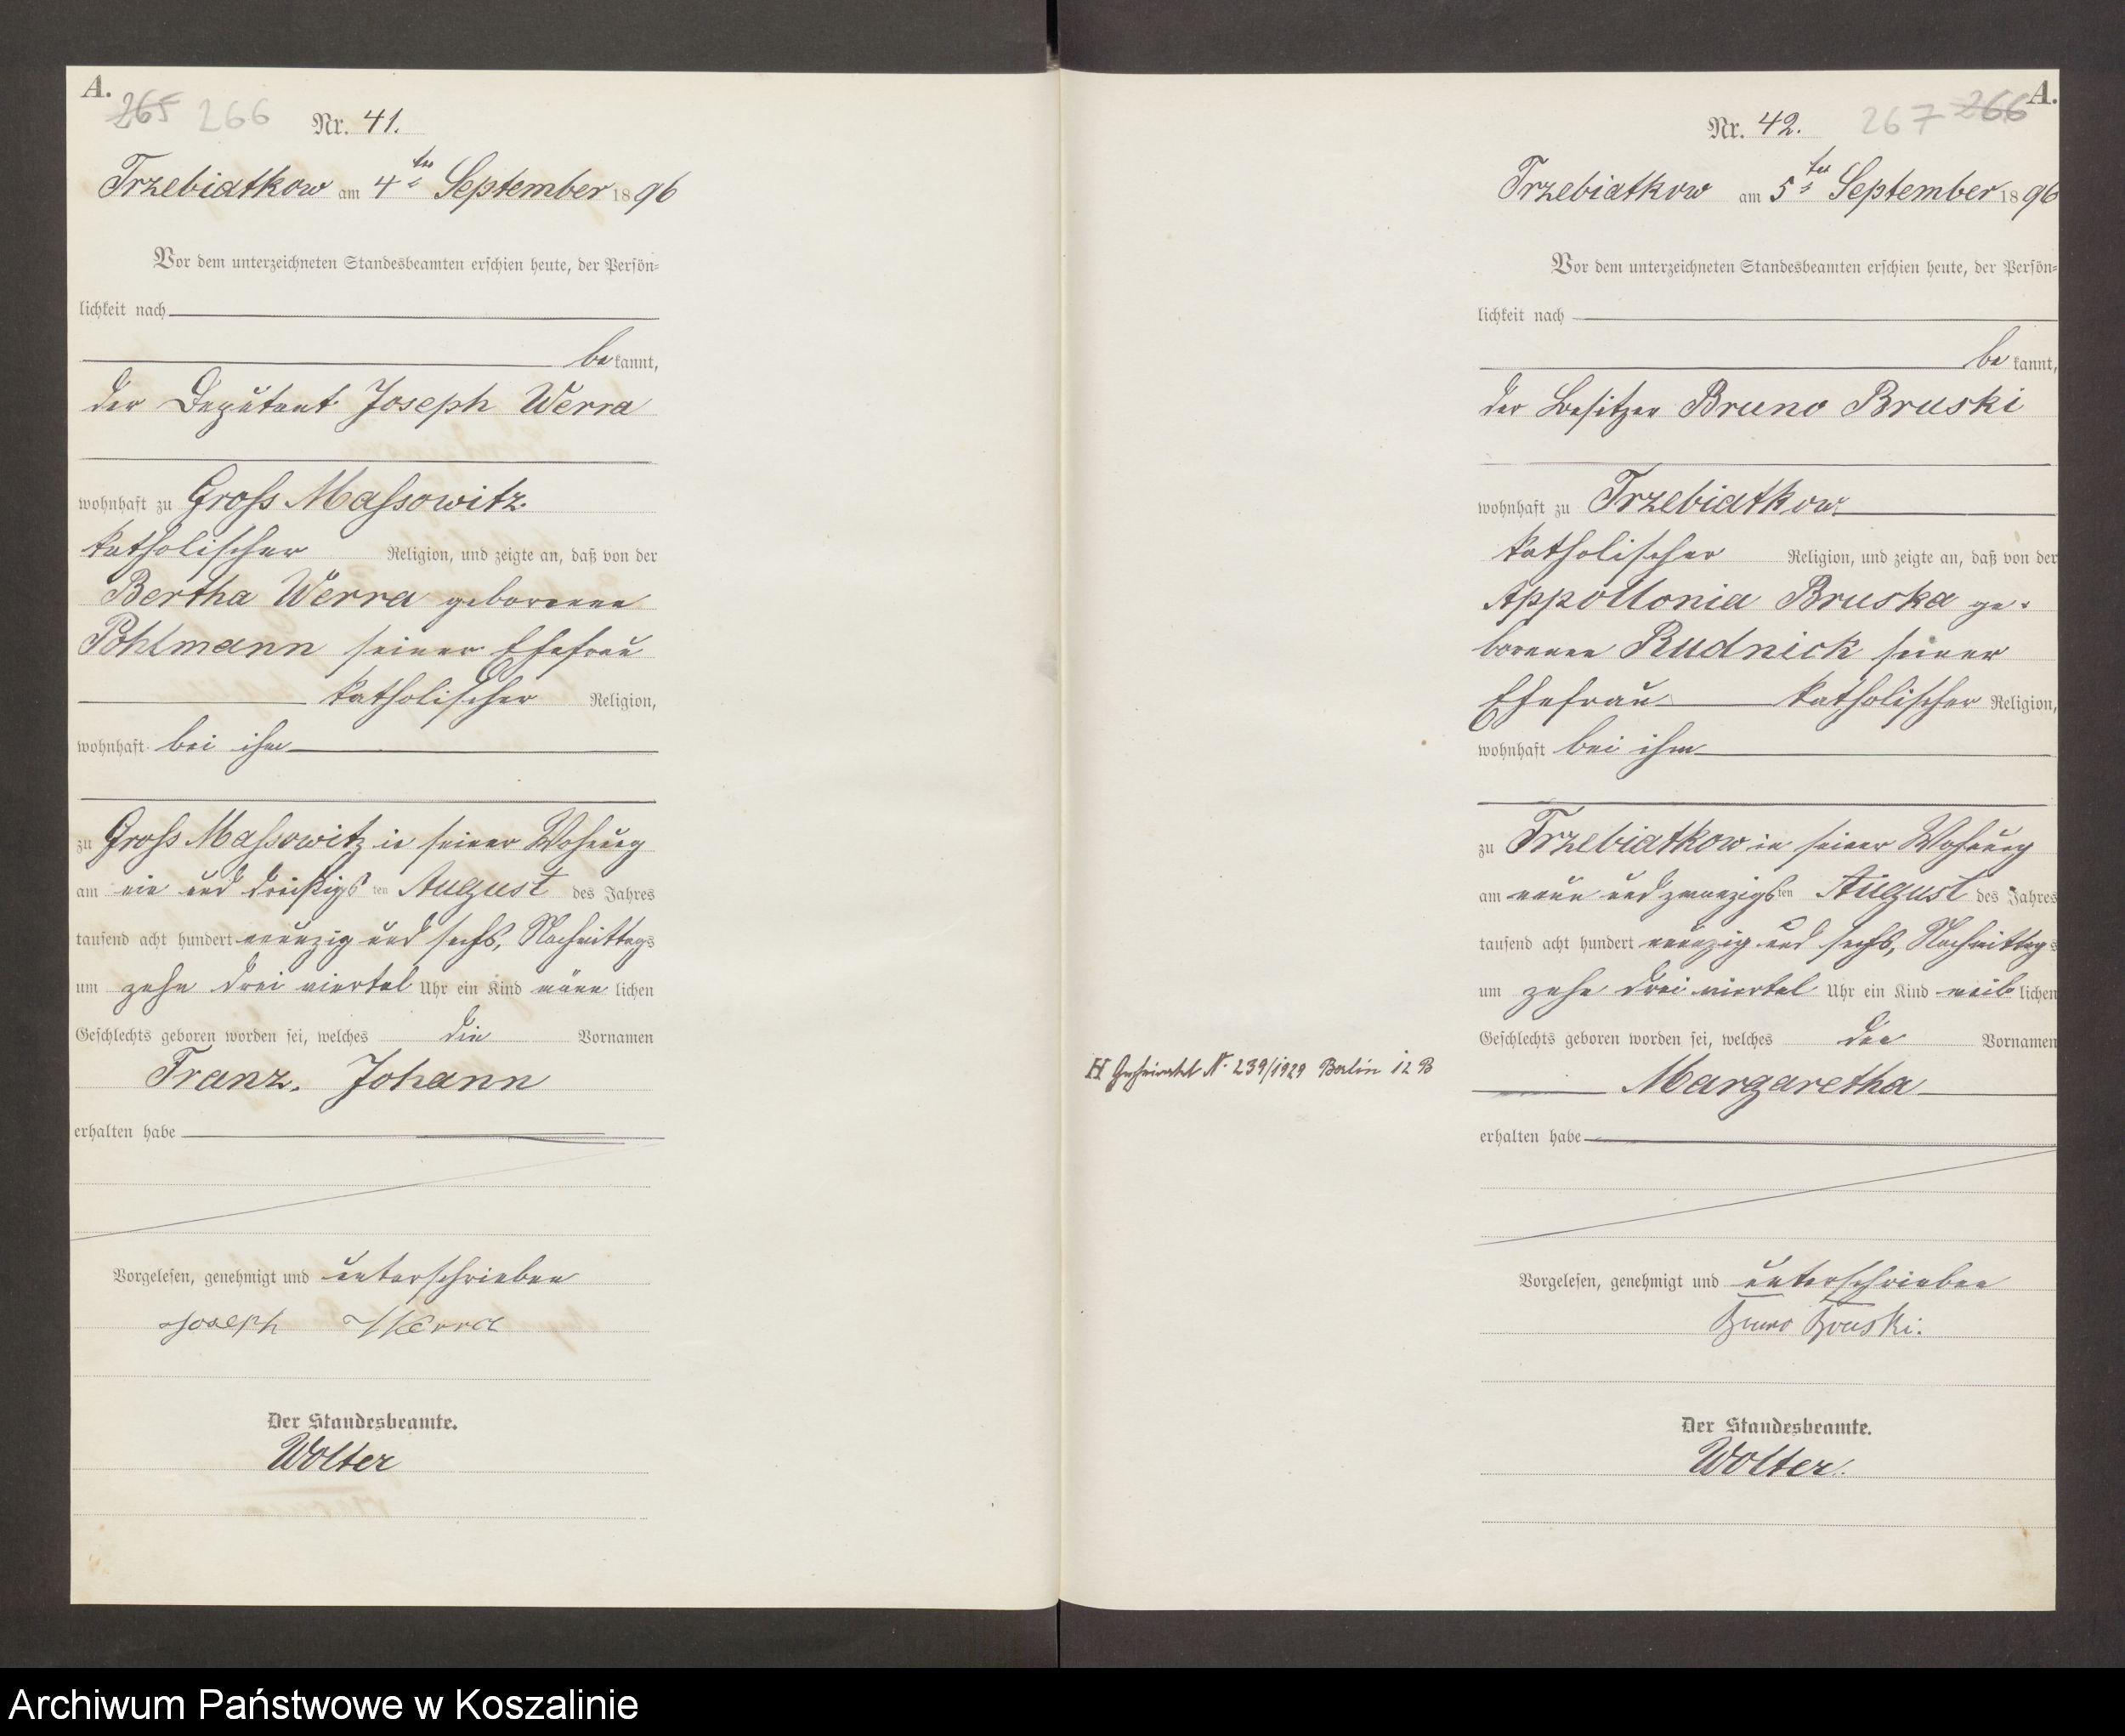 A.
265 266 Nr. 41.
Trzebiatkow am 4ten September 1896
Vor dem unterzeichneten Standesbeamten erschien heute, der Persön-
lichkeit nach
be kannt,
der Deputant Joseph Werra
wohnhaft zu Gross Massowitz
katholischer Religion, und zeigte an, daß von der
Bertha Werra geborenen
Pohlmann seiner Ehefrau
katholischer Religion,
wohnhaft bei ihm
zu Gross Massowitz in seiner Wohnung
am ein und dreißigsten August des Jahres
tausend acht hundert neunzig und sechs, Nachmittags
um zehn drei viertel Uhr ein Kind männlichen
Geschlechts geboren worden sei, welches die Vornamen
Franz, Johann
erhalten habe
Vorgelesen, genehmigt und unterschrieben
Joseph Werra
Der Standesbeamte.
Wolter
A.
Nr. 42. 267 266
Trzebiatkow am 5ten September 1896
Vor dem unterzeichneten Standesbeamten erschien heute, der Persön-
lichkeit nach
be kannt,
der Besitzer Bruno Bruski
wohnhaft zu Trzebiatkow
katholischer Religion, und zeigte an, daß von der
Appollonia Bruska ge-
borenen Rudnick seiner
Ehefrau katholischer Religion,
wohnhaft bei ihm
zu Trzebiatkow in seiner Wohnung
am neun und zwanzigsten August des Jahres
tausend acht hundert neunzig und sechs, Nachmittags
um zehn drei viertel Uhr ein Kind weiblichen
Geschlechts geboren worden sei, welches den Vornamen
H Geheiratet N. 239/1929 Berlin 12 B
Margaretha
erhalten habe
Vorgelesen, genehmigt und unterschrieben
Bruno Bruski.
Der Standesbeamte.
Wolter.
Archiwum Państwowe w Koszalinie